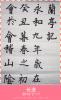 蘭亭記
永和九年歲
癸丑暮春之初
會于會稽山陰